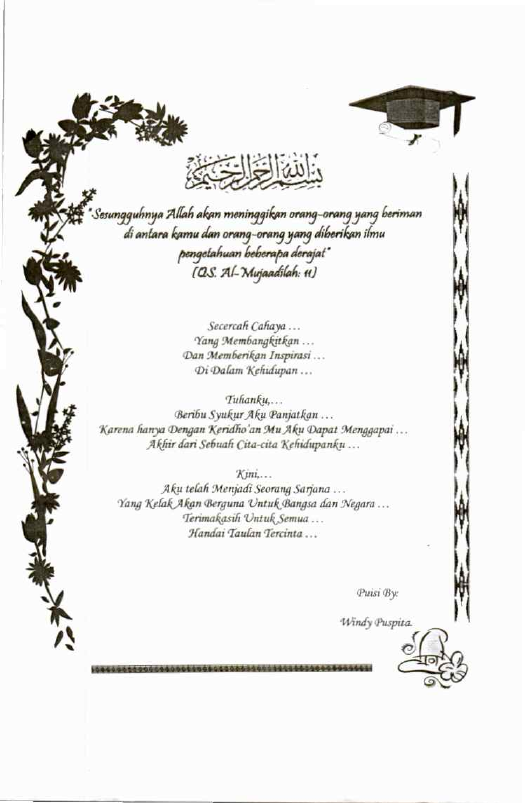 بسم الله الرحمن الرحيم
"Sesungguhnya Allah akan meninggikan orang-orang yang beriman
di antara kamu dan orang-orang yang diberikan ilmu
pengetahuan beberapa derajat"
(QS. Al-Mujaadilah: 11)
Secercah Cahaya ...
Yang Membangkitkan ...
Dan Memberikan Inspirasi ...
Di Dalam Kehidupan ...
Tuhanku,...
Beribu Syukur Aku Panjatkan ...
Karena hanya Dengan Keridho'an Mu Aku Dapat Menggapai ...
Akhir dari Sebuah Cita-cita Kehidupanku ...
Kini,...
Aku telah Menjadi Seorang Sarjana ...
Yang Kelak Akan Berguna Untuk Bangsa dan Negara ...
Terimakasih Untuk Semua ...
Handai Taulan Tercinta ...
Puisi By:
Windy Puspita.